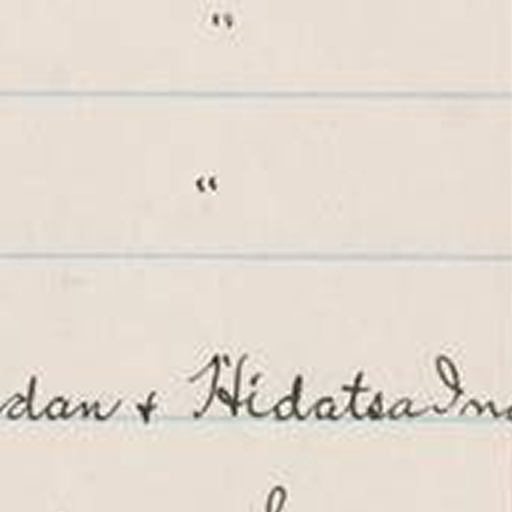 "
"
dan & Hidatsa Ind